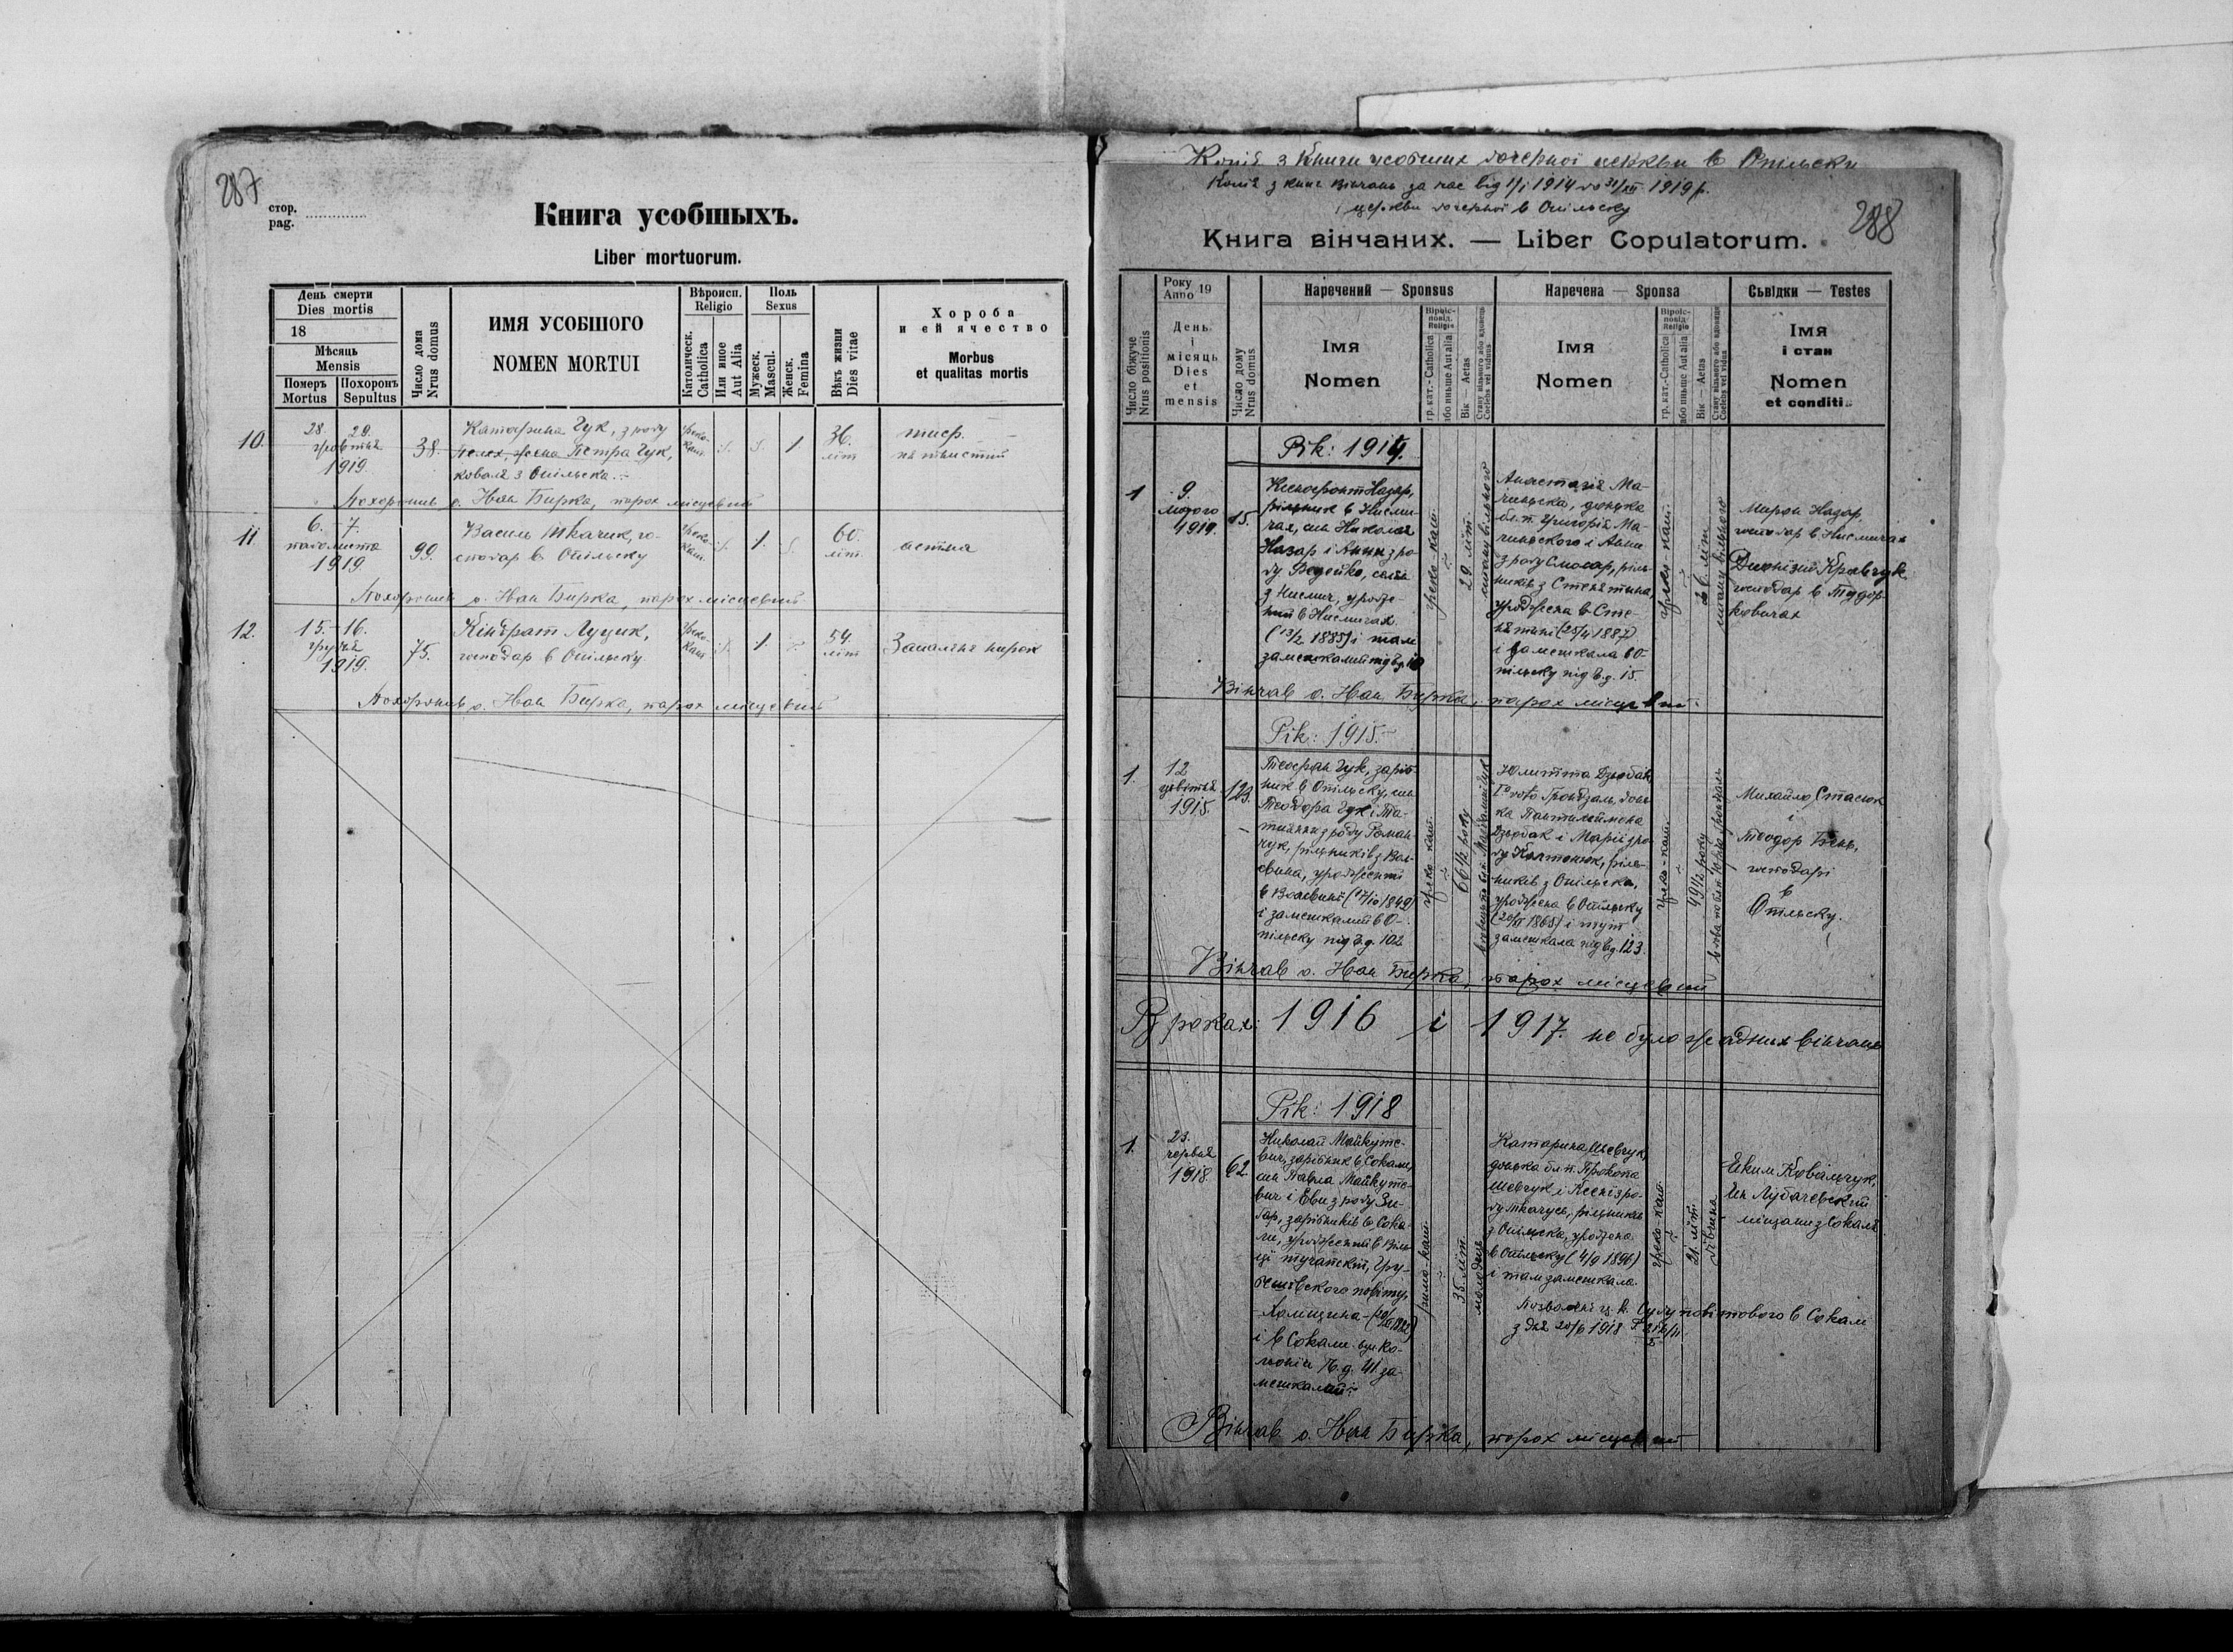 287
стор.
pag.
Книга усобшыхъ.
Liber mortuorum.
День смерти
Dies mortis
18
Мѣсяць
Mensis
Померъ
Mortus
Похоронъ
Sepultus
Число дома
Nrus domus
ИМЯ УСОБШОГО
NOMEN MORTUI
Вѣроисп.
Religio
Католическ.
Catholica
Или иное
Aut Alia
Поль
Sexus
Мужеск.
Mascul.
Женск.
Femina
Вѣкъ жизни
Dies vitae
Хороба
и ей ячество
Morbus
et qualitas mortis
10.
28. 29.
1919.
38.
Катарина Гук, з роду
жена Петра Гук,
коваля з Опільска
греко-
кат.
1.
36.
літ
тиф
Похоронив о. Іван Бирка, парох місцевий
11.
6. 7.
падолиста
1919.
99.
Василь Ткачик, го-
сподар в Опільску
греко-
кат.
1.
60.
літ
астма
Похоронив о. Іван Бирка, парох місцевий
12.
15. 16.
грудня
1919.
75.
Кіндрат Луцик,
господар в Опільску
греко-
кат.
1.
54.
літ
Запалінє нирок
Похоронив о. Іван Бирка, парох місцевий
Копія з Книги усобших дочерної церкви в Опільску
Копія з книг вінчань за час від 1/I 1914 до 31/XII 1919 р.
церкви дочерної в Опільску
288
Книга вінчаних. — Liber Copulatorum.
Число біжуче
Nrus positionis
Року
Anno 19
День
і
місяць
Dies
et
mensis
Число дому
Nrus domus
Наречений — Sponsus
Імя
Nomen
Віроіс-
повід.
Religio
гр. кат.-Catholica
або иньше Aut alia
Вік — Aetas
Стану вільного або вдовець
Coelebs vel viduus
Наречена — Sponsa
Імя
Nomen
Віроіс-
повід.
Religio
гр. кат.-Catholica
або иньше Aut alia
Вік — Aetas
Стану вільного або вдовиця
Coelebs vel vidua
Сьвідки — Testes
Імя
і стан
Nomen
et conditio
Рік: 1914.
1
9.
лютого
1919.
15.
Ксенофонт Назар,
рільник в Нисми-
чах, син Николая
Назар і Анни з ро-
ду Федейко, селян
з Нисмич, уродже-
ний в Нисмичах
(13/2 1885) і там
замешкалий під ч.д. 10
греко-кат.
29 літ.
стану вільного
Анастазія Ма-
чиньска, донька
бл.п. Григорія Ма-
чиньского і Анни
з роду Смолар, ріль-
ників з Стенятина,
уроджена в Сте-
нятині (25/4 1887)
і замешкала в О-
пільску під ч.д. 15.
греко-кат.
26 літ
стану вільного
Мирон Назар,
господар в Нисмичах
Дионізий Кравчук
господар в Тудор-
ковичах
Вінчав о. Іван Бирка, парох місцевий.
Рік: 1915.
1.
12
цвітня
1915.
123.
Теофан Гук, заріб-
ник в Опільску, син
Теодора Гук і Та-
тияни з роду Роман-
чук, рільників з Вол-
свина, уроджений
в Волсвині (17/10 1849)
і замешкалий в О-
пільску під ч.д. 102
греко-кат.
66 1/2 року
Юлитта Дзьобак,
I voto Грондзаль, донь-
ка Пантилеймона
Дзьобак і Марії з ро-
ду Колтонюк, ріль-
ників з Опільска,
уроджена в Опільску
(20/XI 1865) і тут
замешкала під ч.д. 123.
греко-кат.
49 1/2 року
вдова по бл.п. Юрію Грондзаль
Михайло Стасюк
і
Теодор Бень,
господарі
в
Опільску.
Вінчав о. Іван Бирка, парох місцевий
В роках: 1916 і 1917. не було жадних вінчань
Рік: 1918
1.
23.
червня
1918.
62.
Николай Майкуте-
вич, зарібник в Сокали,
син Павла Майкуте-
вич і Еви з роду Зи-
гар, зарібників в Сока-
ли, уроджений в Віль-
ці тучапскій, Гру-
бешівского повіту,
Холмщина
і в Сокали вул. Ко-
льонія ч.д. 41 за-
мешкалий
римо-кат.
35 літ
молодець
Катарина Шевчук,
донька бл.п. Прокопа
Шевчук і Ксені з ро-
ду Ткачусь, рільників
з Опільска, уроджена
в Опільску (4/9 1896)
і там замешкала.
греко-кат.
21 літ
дівчина
Яким Ковальчук,
Ян Лубачевский
міщани з Сокаля
Позволенє ц. к. Суду повітового в Сокали
з дня 20/6 1918
Вінчав о. Іван Бирка, парох місцевий